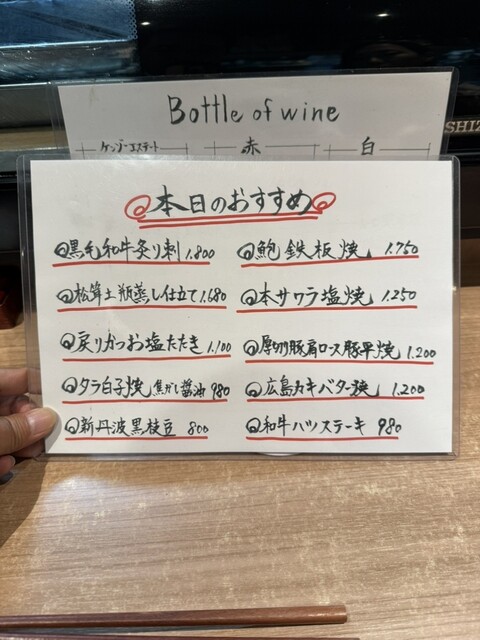 Bottle of wine
ケンゾーエステート 赤 白
本日のおすすめ
黒毛和牛炙り刺 1.800
松茸土瓶蒸し仕立て 1.680
戻りかつお塩たたき 1.100
タラ白子焼 焦がし醤油 980
新丹波黒枝豆 800
鮑鉄板焼 1.750
本サワラ塩焼 1.250
厚切豚肩ロース豚平焼 1.200
広島カキバター焼 1.200
和牛ハツステーキ 980